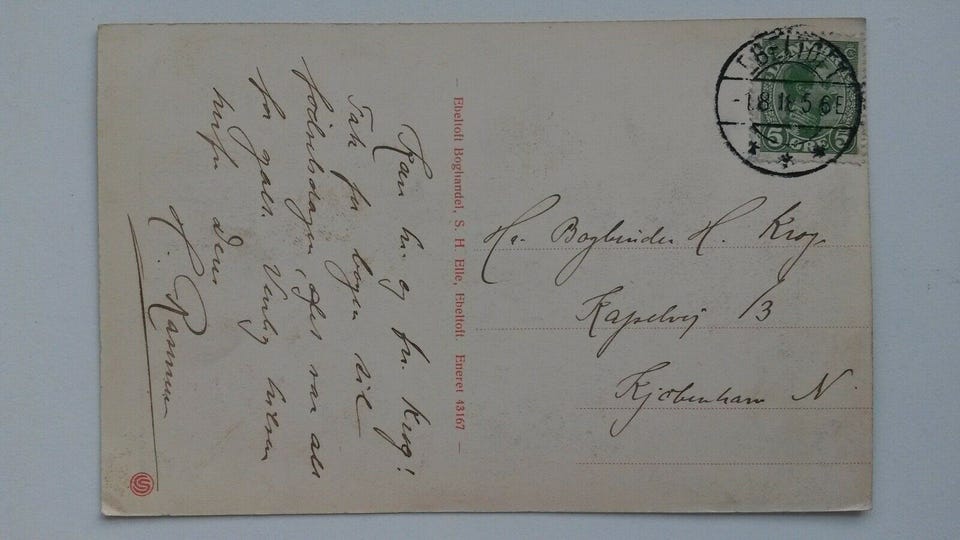 Kære hr. og fru. Krog!
Tak for bogen til
fødselsdagen,
for galt. Venlig hilsen
Deres
H. Rasmussen
– Ebeltoft Boghandel, S. H Elle, Ebeltoft. Eneret 43167 –
EBELTOFT
5 5
Hr. Bogbinder H. Krog,
Kapelvej 13
Kjøbenhavn N